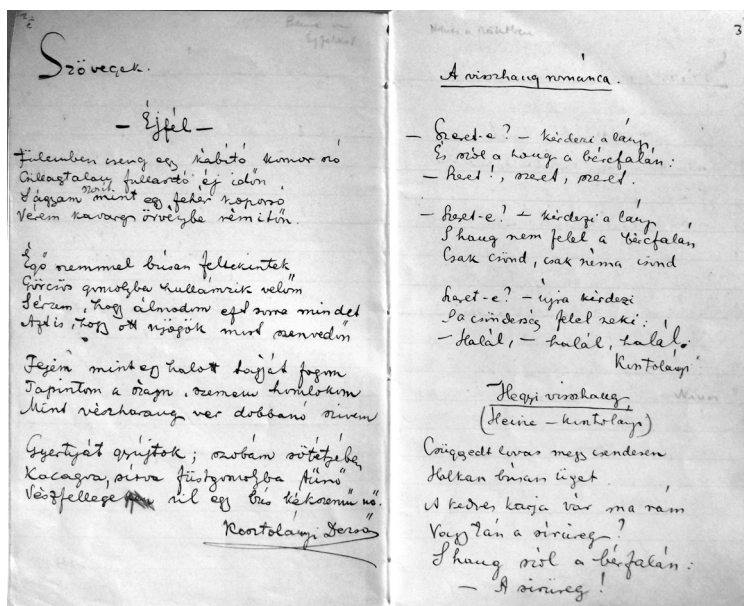 Szövegek.
— Éjfél —
Fülemben cseng egy kábító komor szó
Csillagtalan, fullasztó éj időn
Ágyam szorít mint egy fehér koporsó
Vérem kavarog örvénybe rémitőn.
Égő szemmel búsan feltekintek
Görcsös gomolyba hullámzik velőm
S érzem, hogy álmodom ezt sorra mindet
Azt is, hogy ott nyögök mint szenvedőn
Fejem mint egy halott fajját fogom
Tapintom a szám, szemem homlokom
Mint vészharang ver dobbanó szivem
Gyertyját gyújtok; szobám sötétjében
Kacagva, sírva füstgomolyba tűnő
Vészfellege ül egy bús kékszemű nő.
Kosztolányi Dezső
3
A visszhang románca.
— Szeret-e? — kérdezi a lány
És szól a hang a bércfalán:
— Szeret!, szeret, szeret.
— Szeret-e? — kérdezi a lány
S hang nem felel a bércfalán
Csak csönd, csak néma csönd
Szeret-e? — újra kérdezi
S a csöndesség felel neki:
— Halál, — halál, halál.
Kosztolányi
Hegyi visszhang
(Heine — Kosztolányi)
Csüggedt lovas megy csendesen
Halkan búsan üget.
A kedves karja vár ma rám
Vagy tán a sírüreg?
S hang szól a bérfalán:
— A sírüreg!